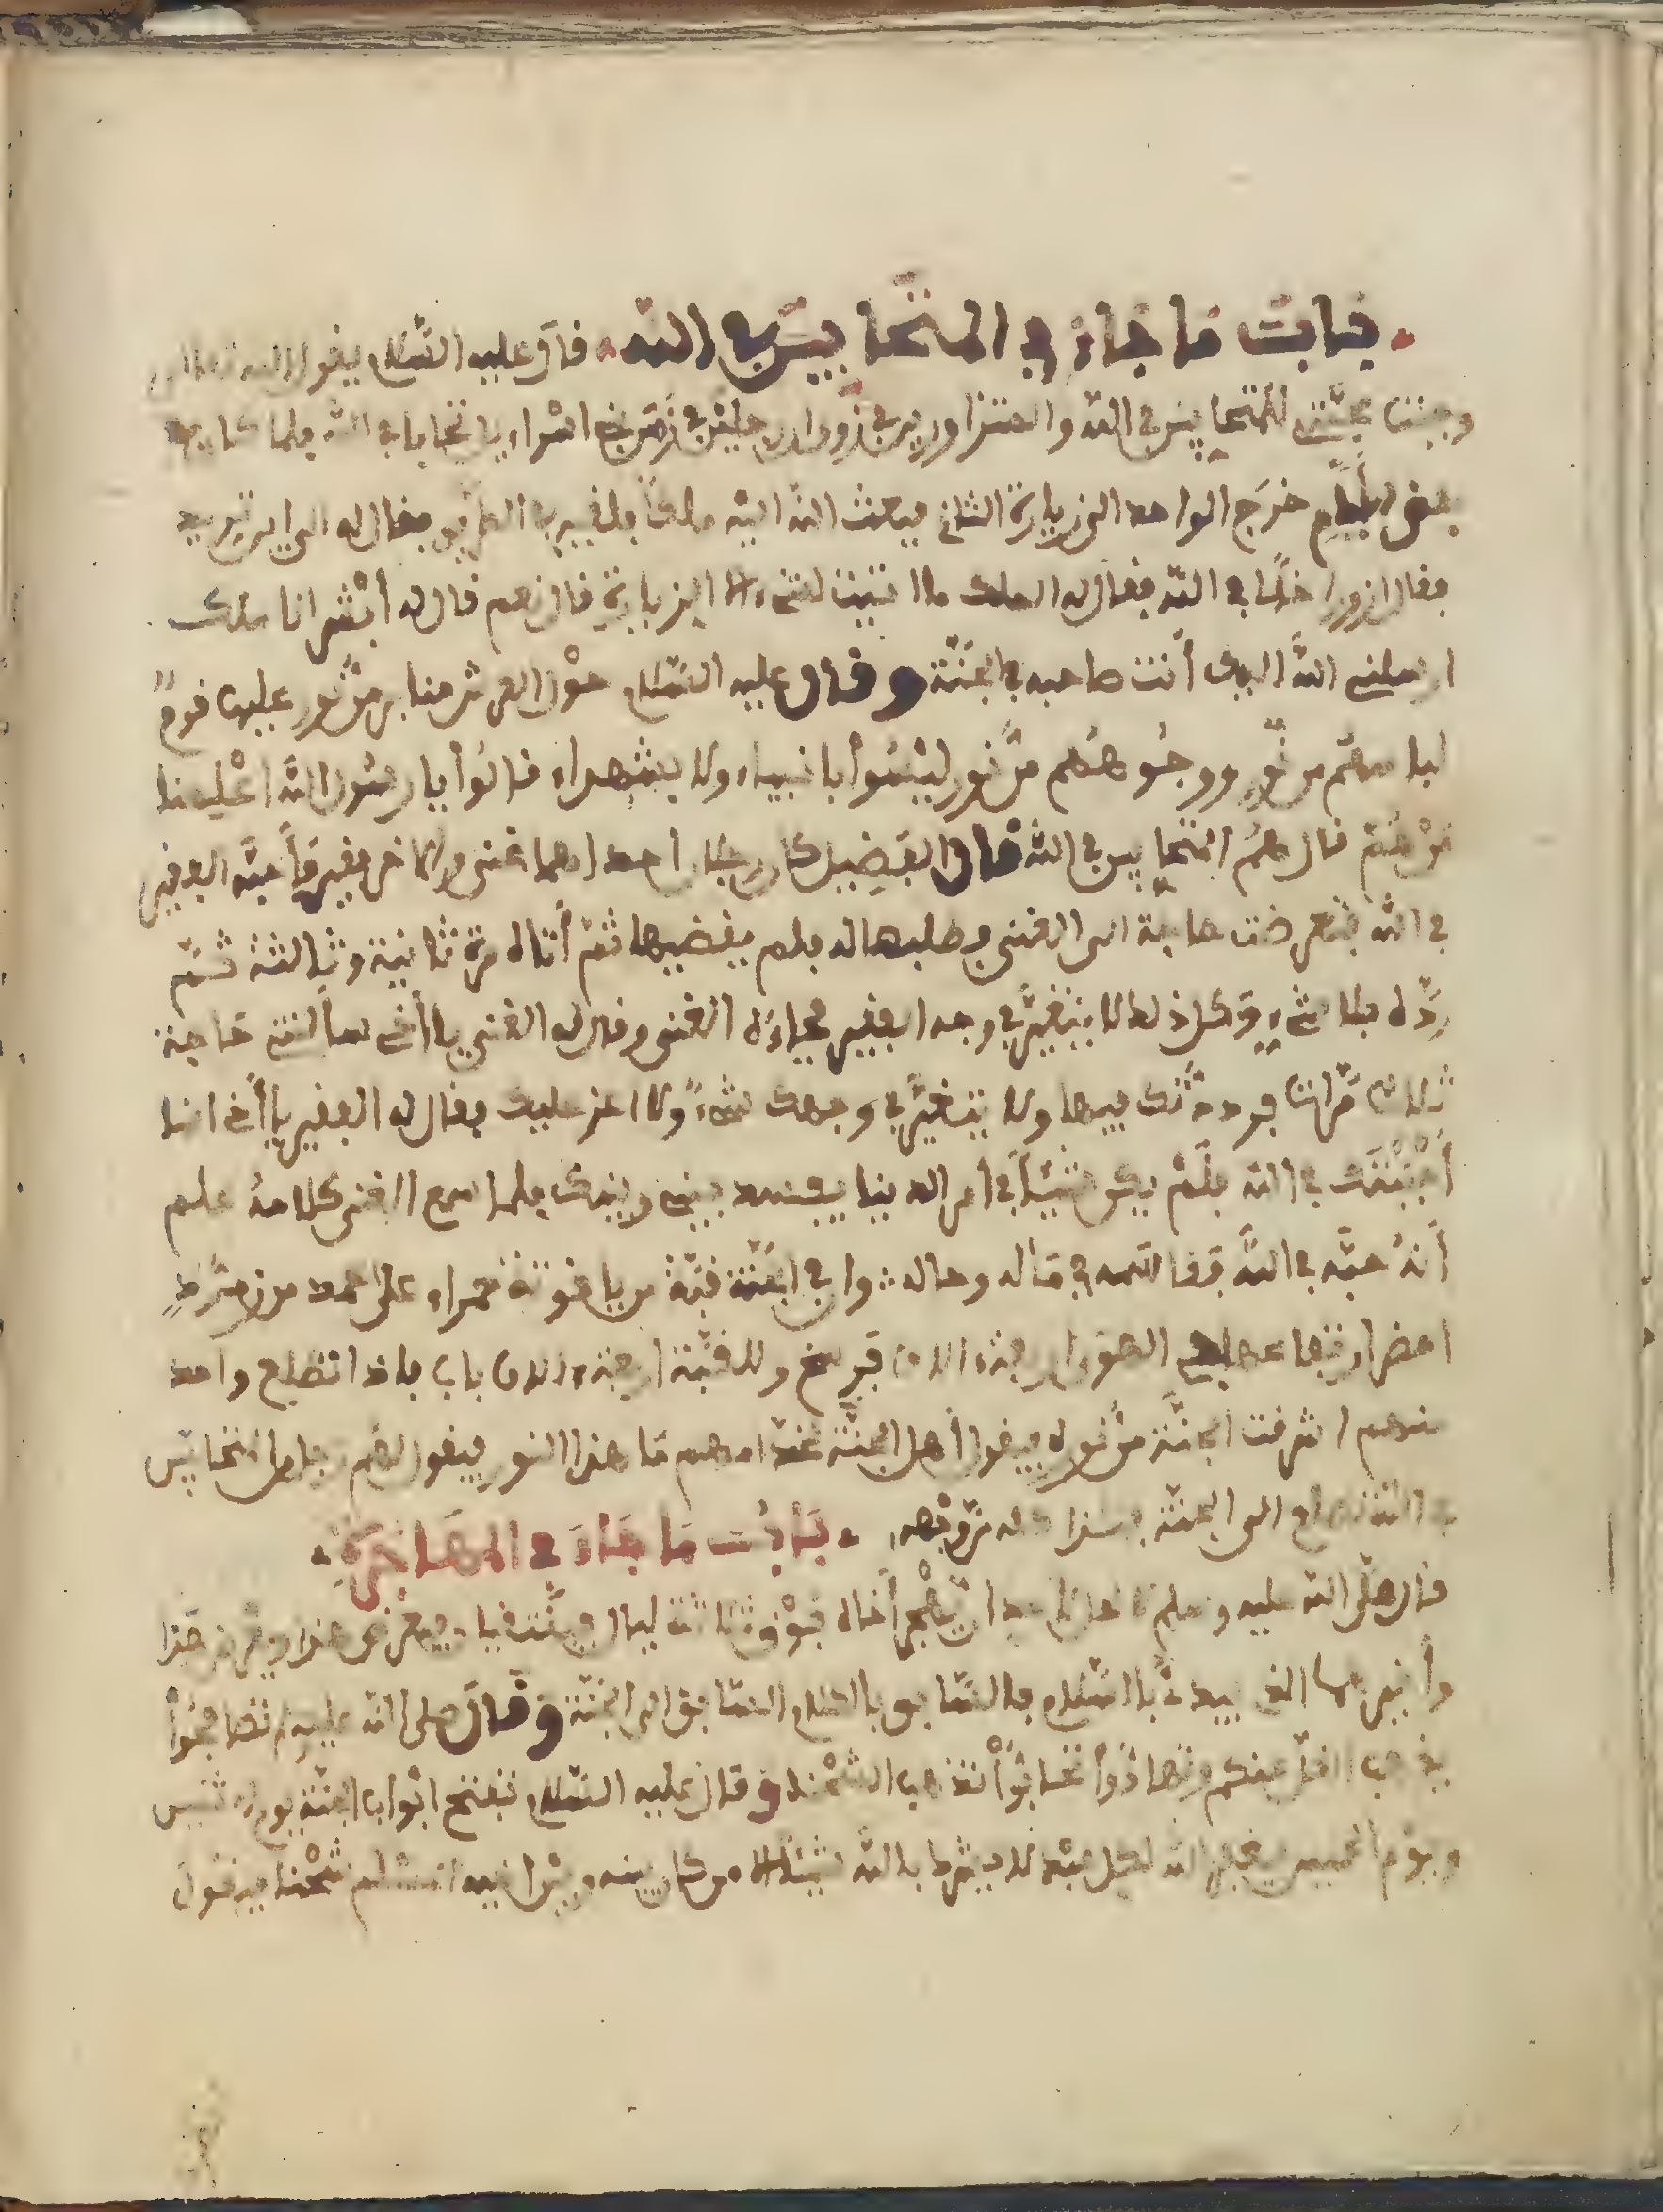 باب ما جاء في المتحابين في الله قال عليه السلام يقول الله تعالى
وجبت محبتي للمتحابين في الله والمتزاورين في وان رجلين في زمن بني اسراءيل تحابا في الله فلما كان في
بعض الأيام خرج الواحد الى زيارة الثاني فبعث الله اليه ملكا فلقيه في الطريق فقال له الى اين تريد
فقال ازور اخا في الله فقال له الملك ما اتيت لشيء الا الزيارة قال نعم قال له أبشر انا ملك
ارسلني الله اليك أنت وصاحبه في الجنة وقال عليه السلام حول العرش منابر من نور عليها قوم
لباسهم من نور ووجوههم من نور ليسوا بانبياء ولا بشهداء قالوا يا رسول الله اعلمنا
من هم قال هم المتحابين في الله قال الفضيل كان رجلان احدهما غني والاخر فقير فأحبه الفقير
في الله فتعرضت حاجة الى الغني وطلبها له فلم يقضيها ثم أتاه مرة ثانية وثالثة ثم
رده بلا شيء وكل ذلك لا يتغير في وجه الفقير فجاءه الغني وقال له الغني يا أخي سألتني حاجة
ثلاث مرات فرددتك فيها ولا يتغير في وجهك شيء ولا اعز عليك فقال له الفقير يا أخي انا
أحببتك في الله فلم يكن شيئا في أمر الدنيا يفسد بيني وبينك فلما سمع الغني كلامه علم
أنه حبه في الله فقاسمه في ماله وحاله وان في الجنة قبة من ياقوتة حمراء على عمد من زمرد
اخضر ارتفاعها في الهواء اربعة ءالاف فرسخ وللقبة اربعة ءالاف باب فاذا تطلع واحد
منهم اشرقت الجنة من نوره فيقول أهل الجنة لخدامهم ما هذا النور فيقول لهم رجل من المتحابين
في الله تطلع الى الجنة باب ما جاء في المهاجرة
قال صلى الله عليه وسلم لا يحل لأحد ان يهجر أخاه فوق ثلاثة ليال يلتقيا فيعرض هذا ويعرض هذا
وأخيرهما الذي يبدء بالسلام فالسابق بالسلام السابق الى الجنة وقال صلى الله عليه تصافحوا
يذهب الغل عنكم وتهادوا تحابوا تذهب الشحناء وقال عليه السلام تفتح ابواب الجنة يوم الاثنين
ويوم الخميس فيغفر الله لكل عبد لا يشرك بالله شيئا الا من كان بينه وبين اخيه المسلم شحنا فيقول